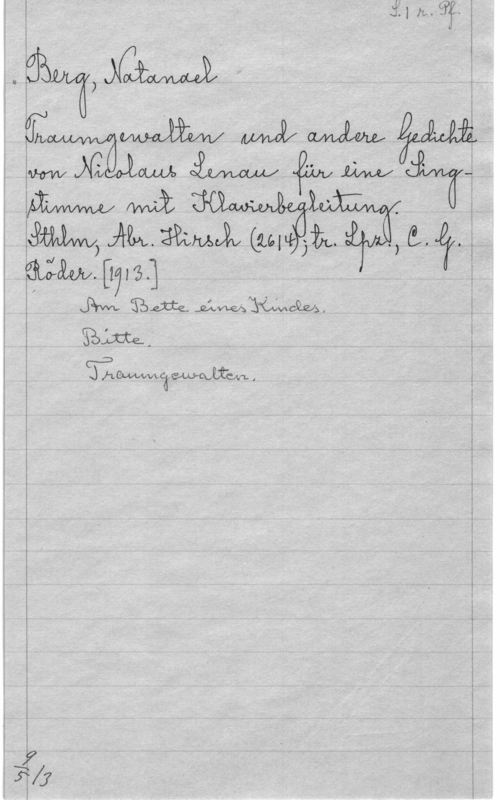 S. 1 r. Pf.
Berg, Natanael
Traumgewalten und andere Gedichte
von Nicolaus Lenau für eine Sing-
stimme mit Klavierbegleitung.
Sthlm, Abr. Hirsch (2614); tr. Lpz., C. G.
Röder. [1913.]
Am Bette eines Kindes.
Bitte.
Traumgewalten.
9/5 13